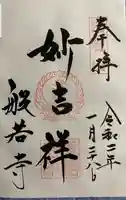 奉拝
令和二年
一月三十八日
妙吉祥
般若寺